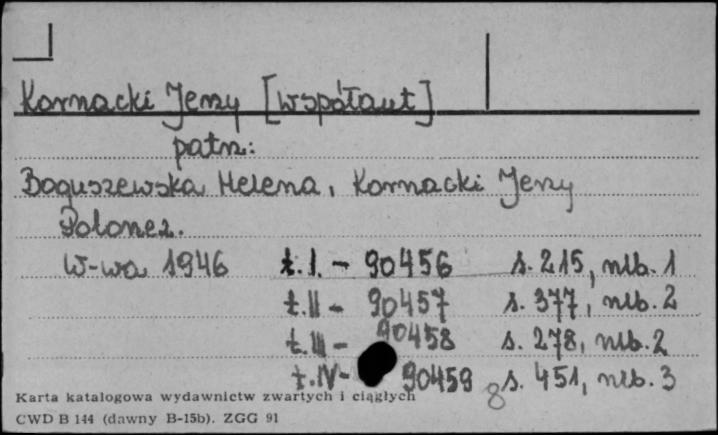 Kornacki Jerzy [współaut]
patrz:
Boguszewska Helena, Kornacki Jerzy
Polonez.
W-wa 1946 t. I. - 90456 s. 215, nlb. 1
t. II - 90457 s. 377, nlb. 2
t. III - 90458 s. 278, nlb. 2
t. IV - 90459 s. 451, nlb. 3
8
Karta katalogowa wydawnictw zwartych i ciągłych
CWD B 144 (dawny B-15b). ZGG 91